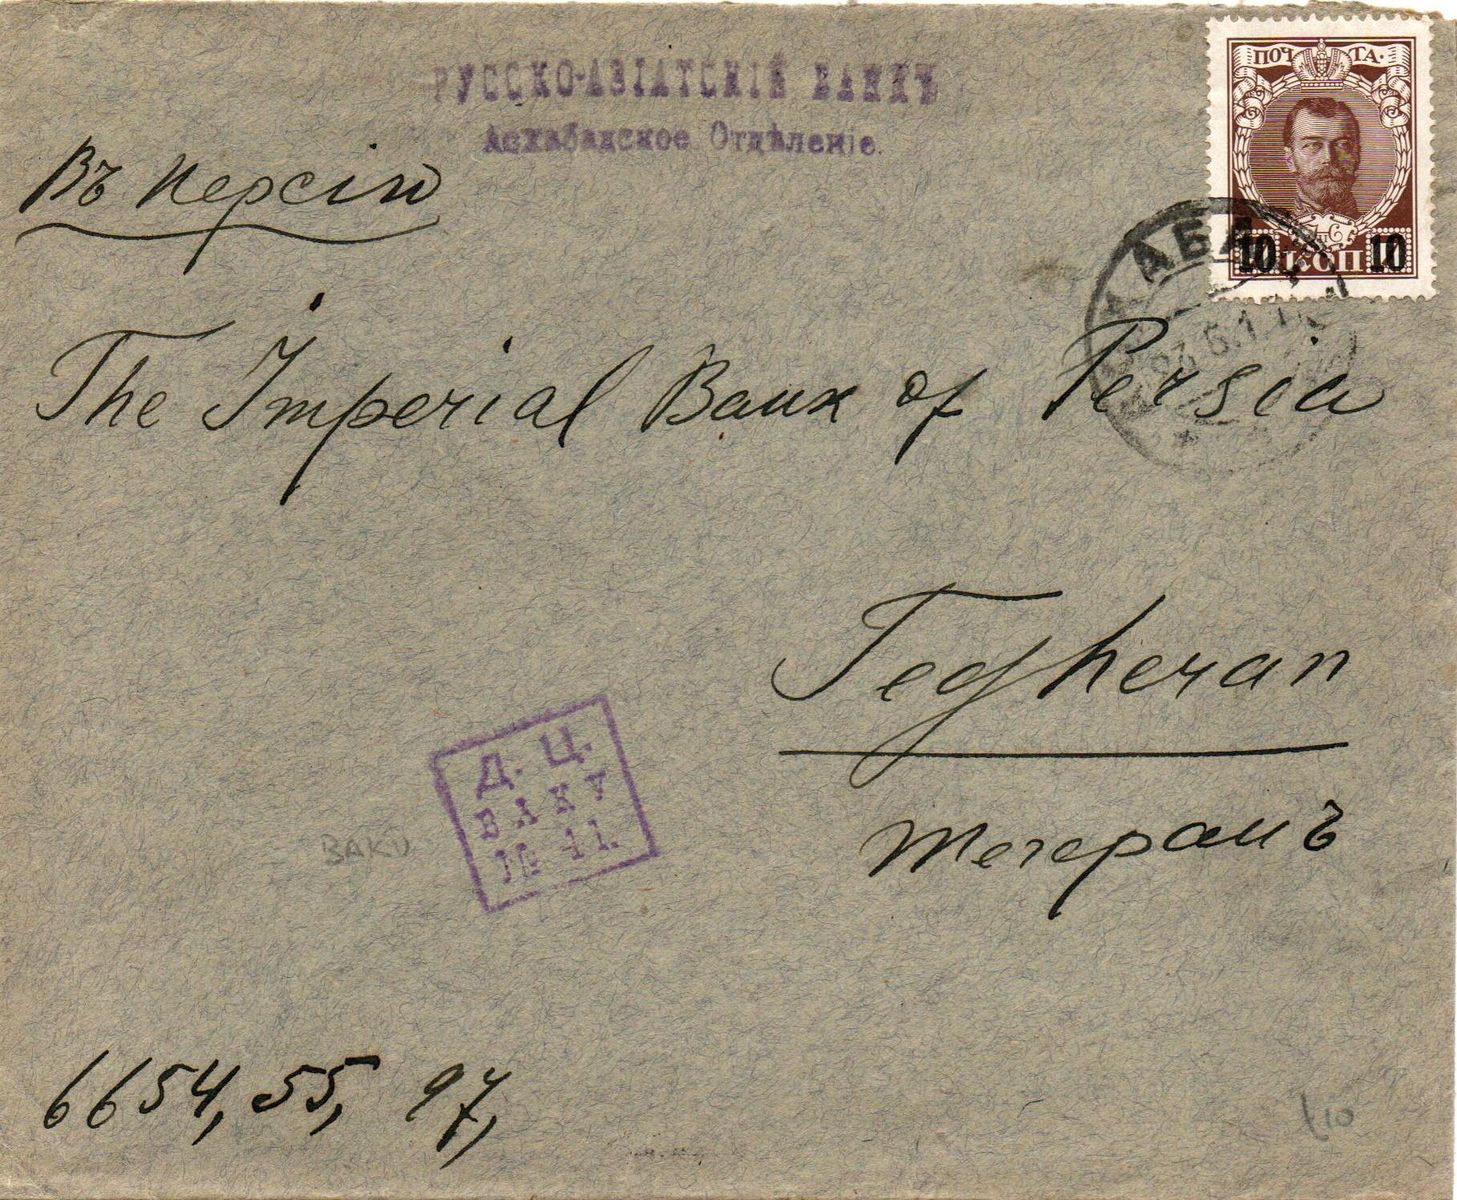 РУССКО-АЗІАТСКІЙ БАНКЪ
Асхабадское Отдѣленіе.
ПОЧТА.
10 КОП 10
Въ Персію
The Imperial Bank of Persia
Tegheran
Тегеранъ
Д. Ц.
БАКУ
№ 11.
BAKU
6654, 55, 97,